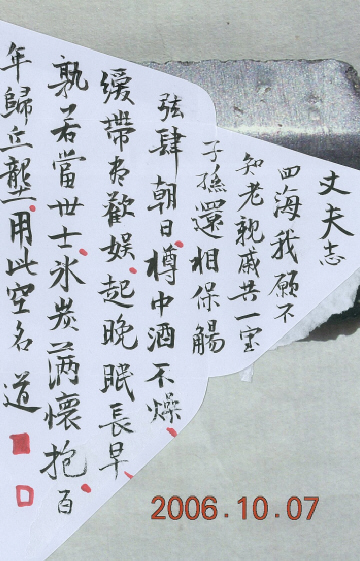 丈夫志
四海我願不
知老親戚共一室
子孫還相保觴
弦肆朝日樽中酒不燥
緩帶尽歡娱起晚眠長早
孰若當世士冰炭满懷抱百
年歸丘壟用此空名道
2006.10.07